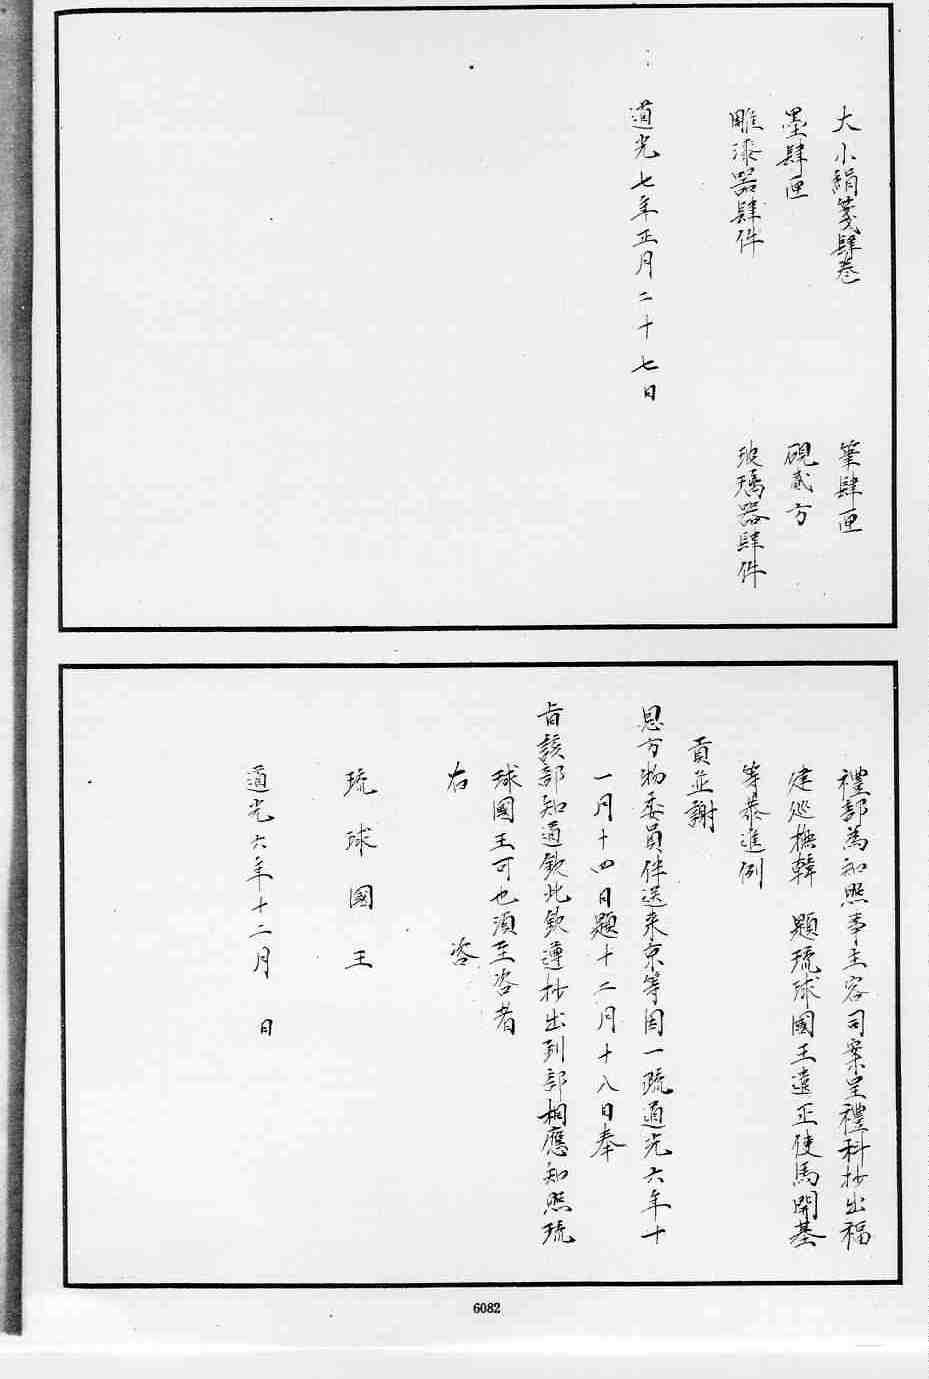 大小絹箋肆卷 筆肆匣
墨肆匣 硯貳方
雕漆器肆件 玻璃器肆件
道光七年正月二十七日
禮部為知照事主客司案呈禮科抄出福
建巡撫韓 題琉球國王遣正使馬開基
等恭進例
貢並謝
恩方物委員伴送來京等因一疏道光六年十
一月十四日題十二月十八日奉
旨該部知道欽此欽遵抄出到部相應知照琉
球國王可也須至咨者
右 咨
琉球國王
道光六年十二月 日
6082